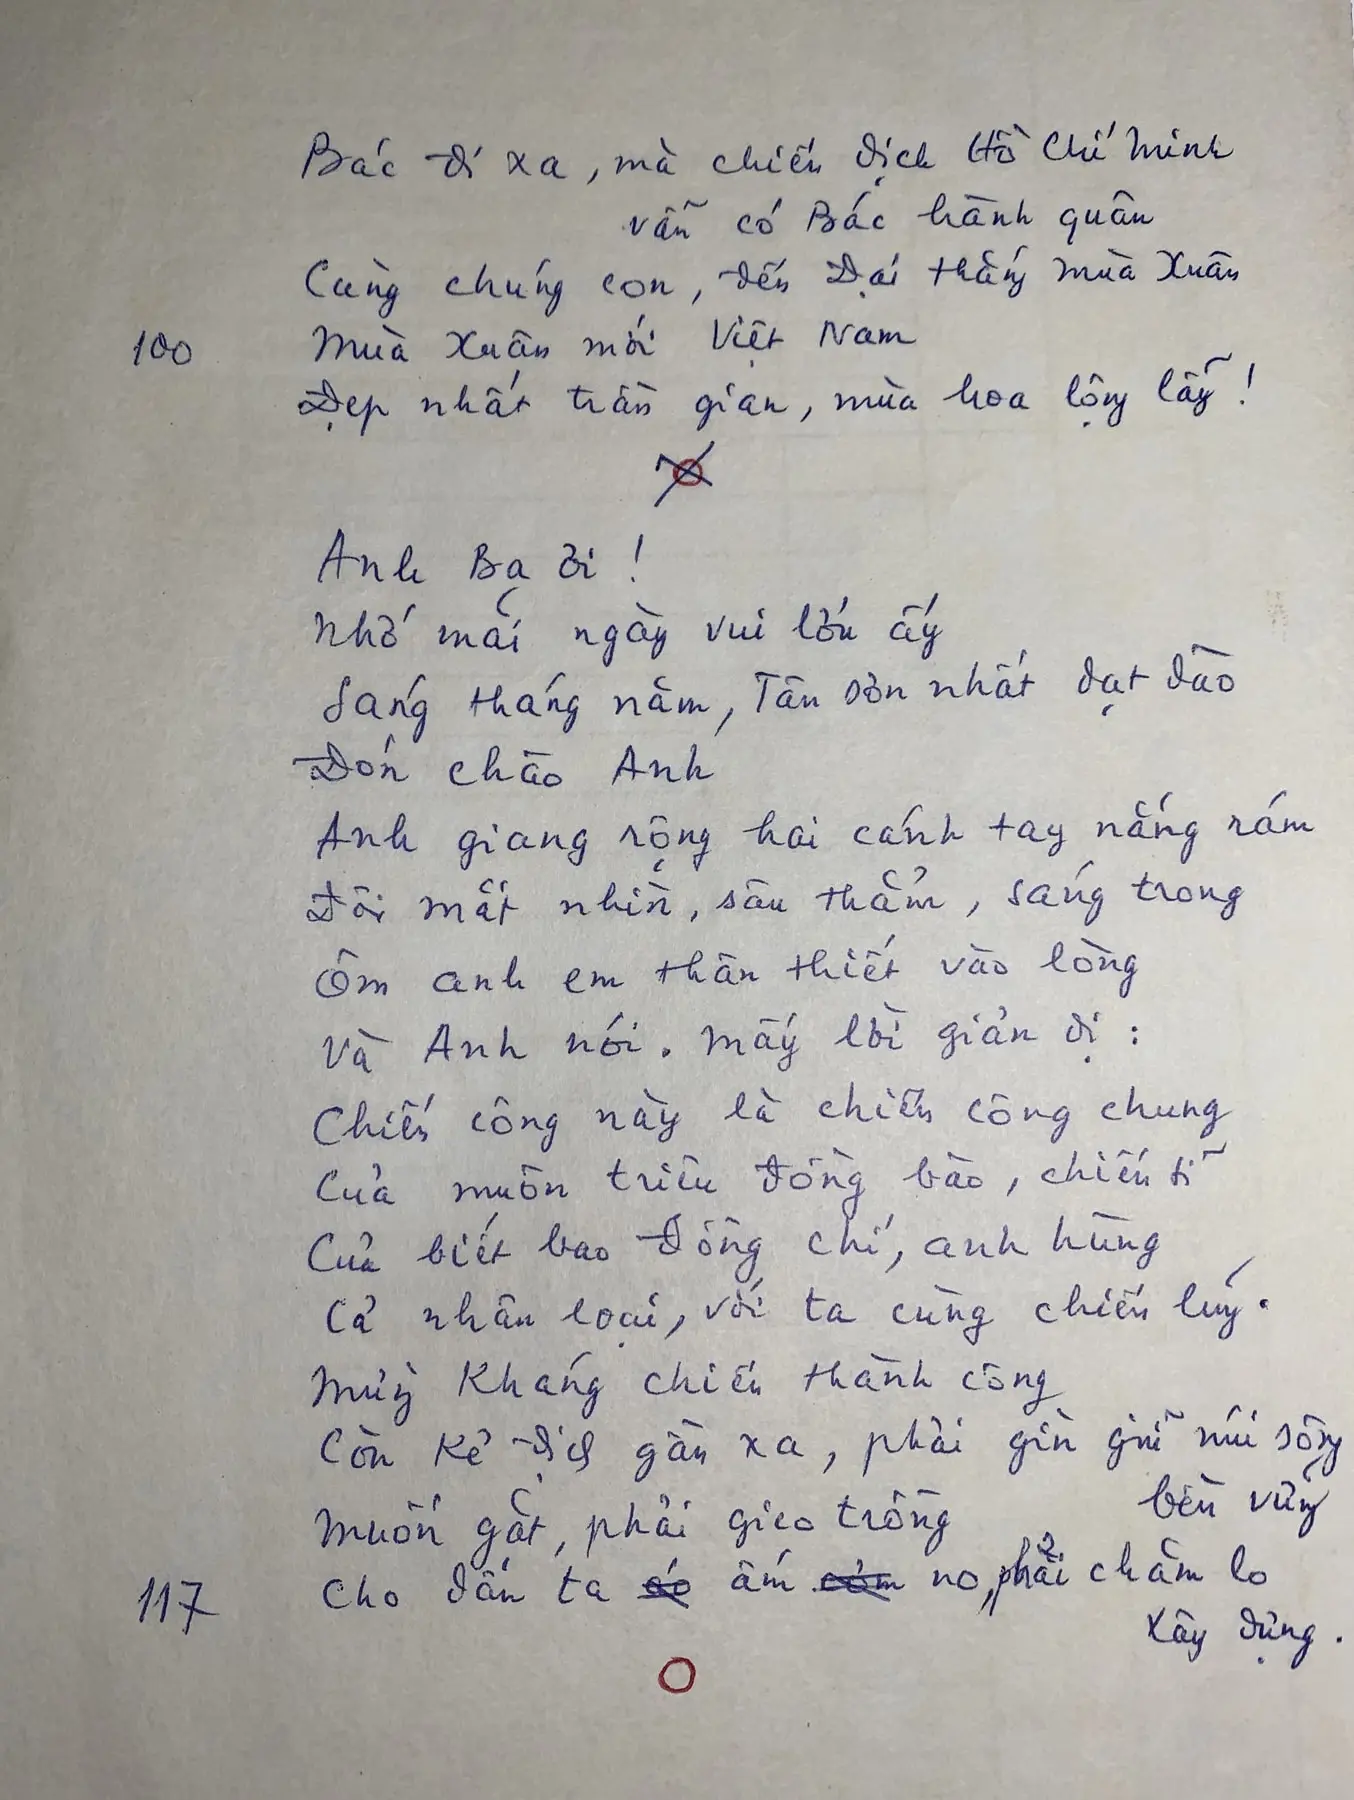 Bác đi xa, mà chiến dịch Hồ Chí Minh
vẫn có Bác hành quân
Cùng chúng con, đến Đại thắng mùa Xuân
100 Mùa Xuân mới Việt Nam
Đẹp nhất trần gian, mùa hoa lộng lẫy!
Anh Ba ơi!
Nhớ mãi ngày vui lớn ấy
Sáng tháng năm, Tân Sơn Nhất dạt dào
Đón chào Anh
Anh giang rộng hai cánh tay nắng rám
Đôi mắt nhìn, sâu thẳm, sáng trong
Ôm anh em thân thiết vào lòng
Và Anh nói. Mấy lời giản dị:
Chiến công này là chiến công chung
Của muôn triệu đồng bào, chiến sĩ
Của biết bao đồng chí, anh hùng
Cả nhân loại, với ta cùng chiến lũy.
Mừng kháng chiến thành công
Còn kẻ địch gần xa, phải gìn giữ núi sông
bền vững
Muốn gặt, phải gieo trồng
117 Cho dân ta áo ấm cơm no, phải chăm lo
xây dựng.